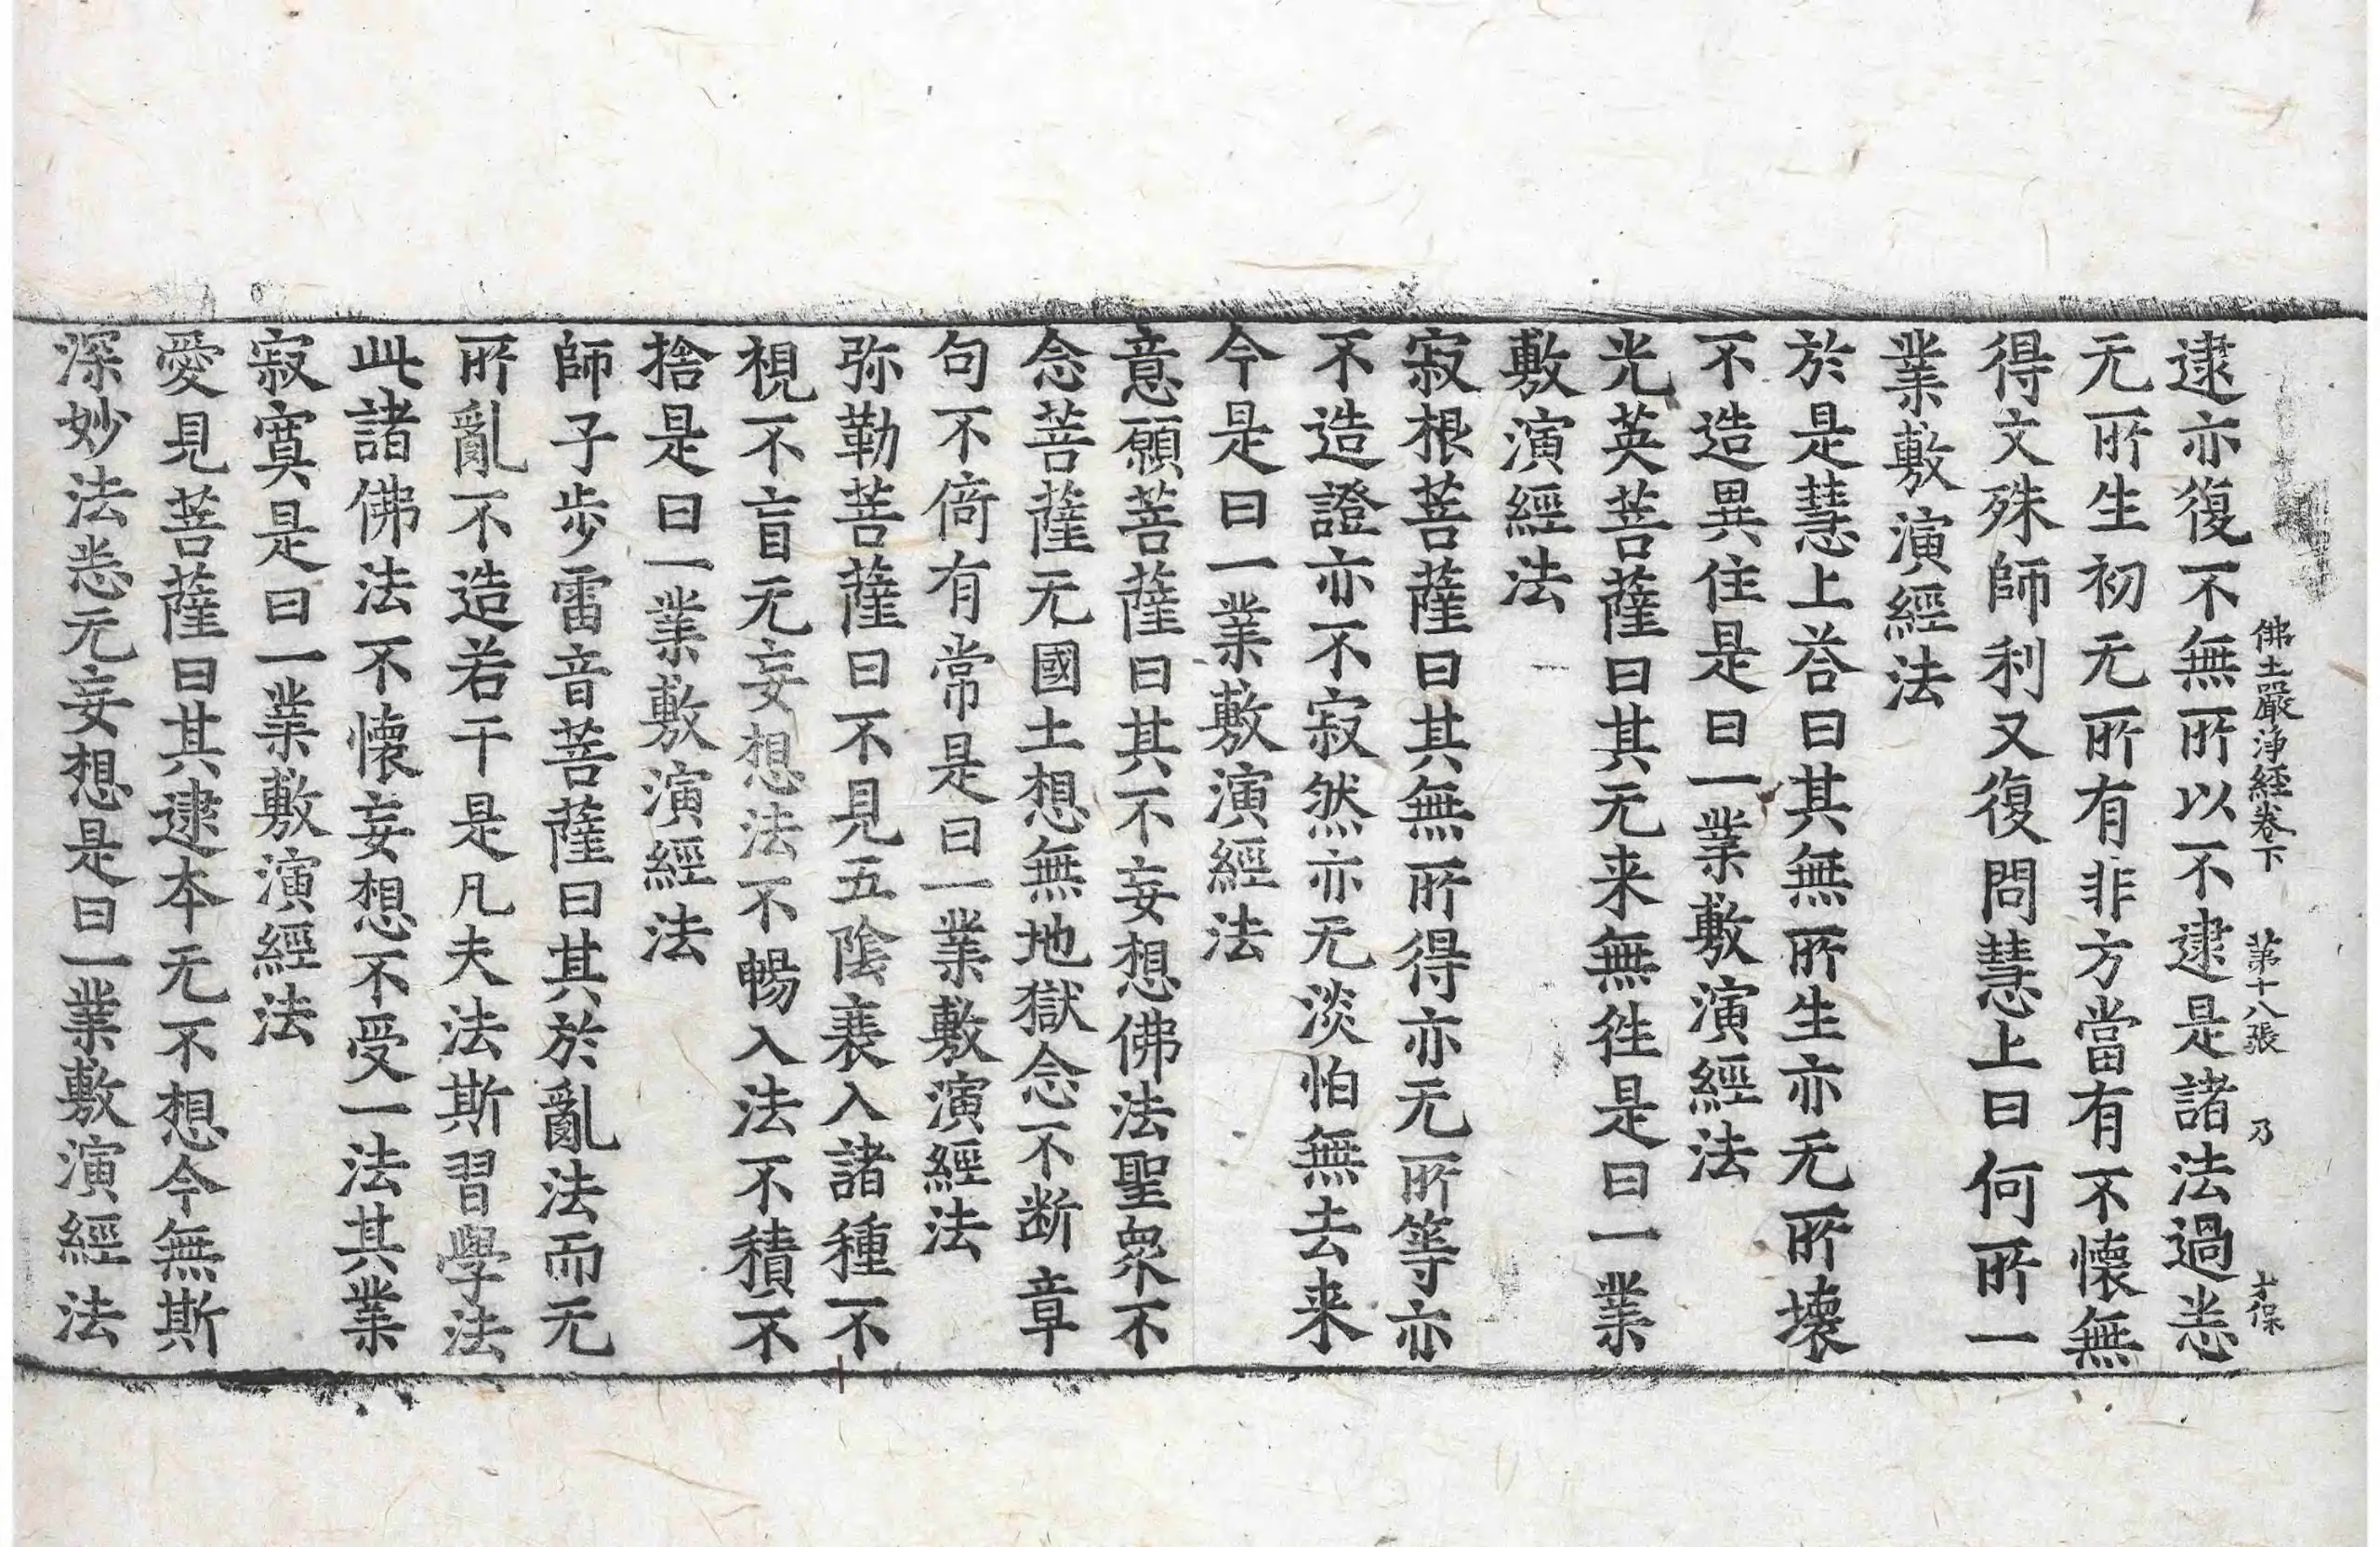 佛土嚴浄經卷下 第十八張 乃 才保
逮亦復不無所以不逮是諸法過悉
无所生初无所有非方當有不懷無
得文殊師利又復問慧上曰何所一
業敷演經法
於是慧上荅曰其無所生亦无所壞
不造異住是曰一業敷演經法
光英菩薩曰其无来無徃是曰一業
敷演經法
寂根菩薩曰其無所得亦无所等亦
不造證亦不寂然亦无淡怕無去来
今是曰一業敷演經法
意願菩薩曰其不妄想佛法聖衆不
念菩薩无國土想無地獄念不断章
句不倚有常是曰一業敷演經法
弥勒菩薩曰不見五陰衰入諸種不
視不盲无妄想法不暢入法不積不
捨是曰一業敷演經法
師子步雷音菩薩曰其於亂法而无
所亂不造若干是凡夫法斯習學法
此諸佛法不懷妄想不受一法其業
寂寞是曰一業敷演經法
愛見菩薩曰其逮本无不想今無斯
深妙法悉无妄想是曰一業敷演經法